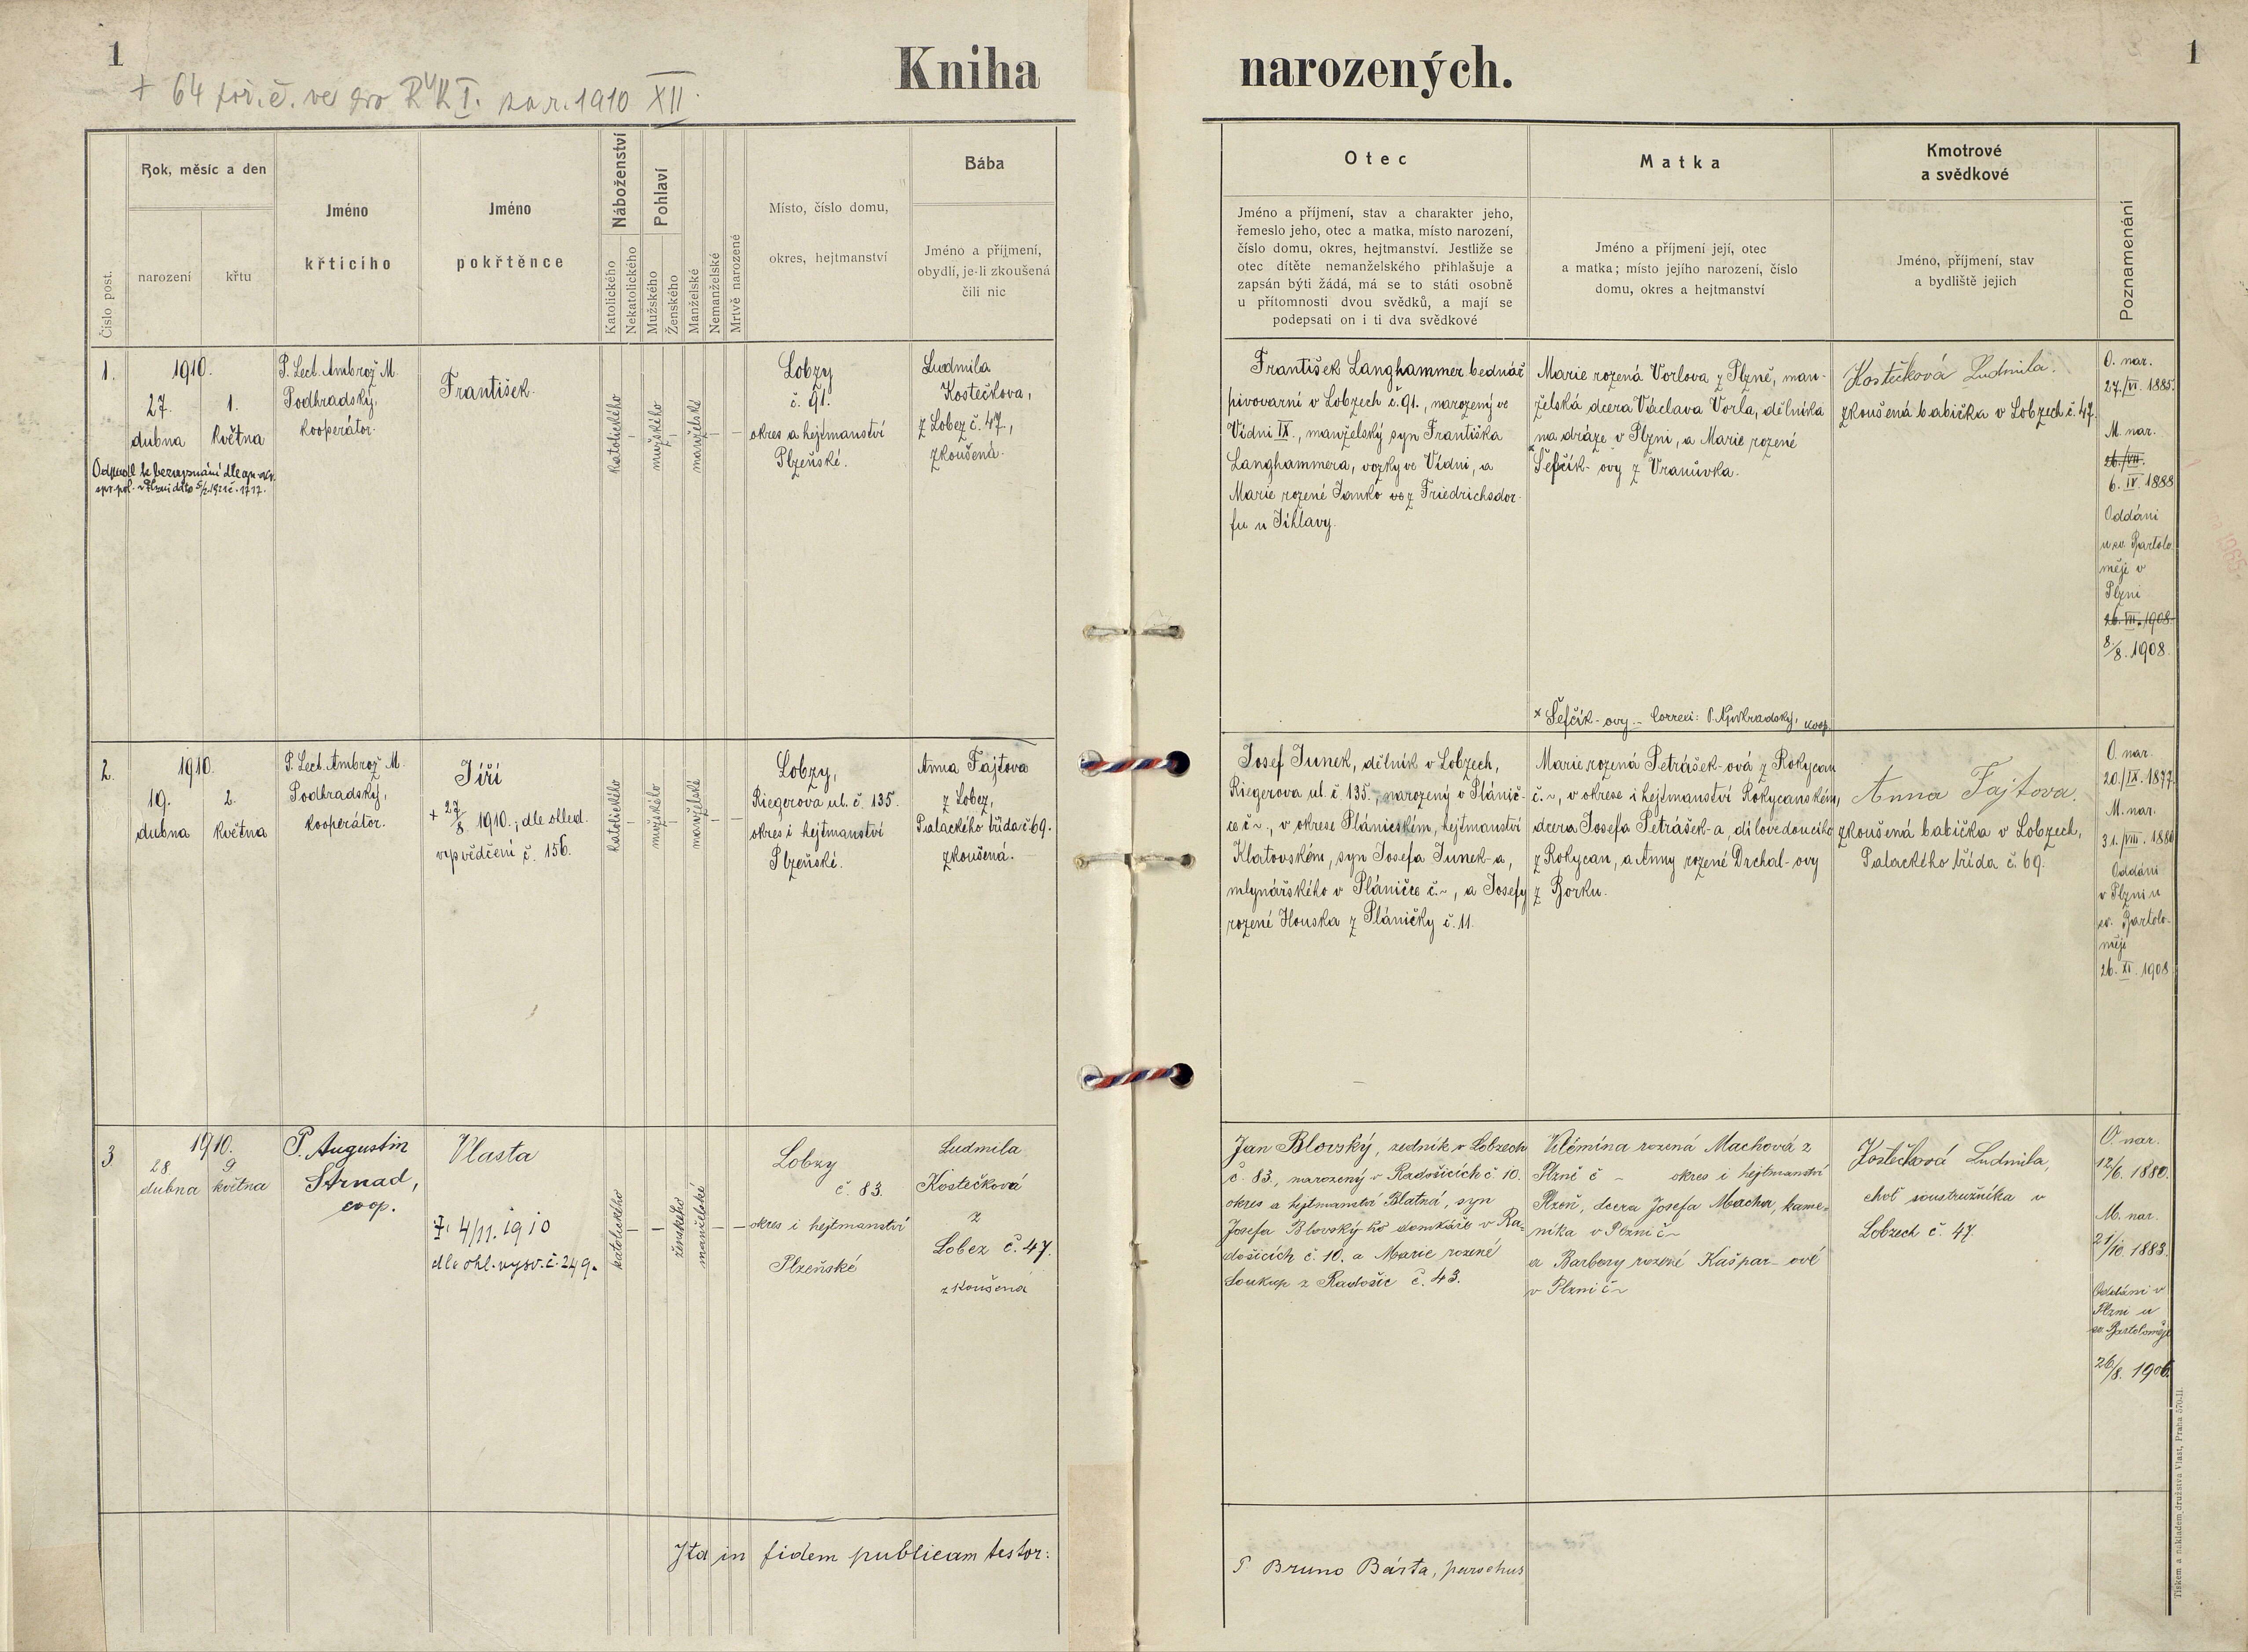 1
Kniha
narozených.
1
+ 64 poř. č. ve pro za r. 1910 XII.
Číslo post.
Rok, měsíc a den
narození
křtu
Jméno
křticího
Jméno
pokřtěnce
Náboženství
Katolického
Nekatolického
Pohlaví
Mužského
Ženského
Manželské
Nemanželské
Mrtvě narozené
Místo, číslo domu,
okres, hejtmanství
Bába
Jméno a příjmení,
obydlí, je-li zkoušená
čili nic
Otec
Jméno a příjmení, stav a charakter jeho,
řemeslo jeho, otec a matka, místo narození,
číslo domu, okres, hejtmanství. Jestliže se
otec dítěte nemanželského přihlašuje a
zapsán býti žádá, má se to státi osobně
u přítomnosti dvou svědků, a mají se
podepsati on i ti dva svědkové
Matka
Jméno a příjmení její, otec
a matka; místo jejího narození, číslo
domu, okres a hejtmanství
Kmotrové
a svědkové
Jméno, příjmení, stav
a bydliště jejich
Poznamenání
1.
1910.
27. 1.
dubna května
P. Lect. Ambrož M.
Podhradský,
kooperátor.
František.
katolického
–
mužského
–
manželské
–
–
Lobzy
č. 91.
okres a hejtmanství
Plzeňské.
Ludmila
Kostečkova,
z Lobez č. 47,
zkoušená.
František Langhammer bednář
pivovarní v Lobzech č. 91., narozený ve
Vídni IX., manželský syn Františka
Langhammera, vozky ve Vídni, a
Marie rozené Janko z Friedrichsdor-
fu u Jihlavy.
Marie rozená Vorlova z Plzně, man-
želská dcera Václava Vorla, dělníka
na dráze v Plzni, a Marie rozené
* Šefčík-ovy z Vranůvka.
* Šefčík-ovy. – Correxi: P. Podhradský, koop.
Kostečková Ludmila.
zkoušená babička v Lobzech č. 47.
O. nar.
27./VI. 1885.
M. nar.
26./VII.
6. IV. 1888
Oddáni
u sv. Bartolo-
měje v
Plzni
26. VII. 1908.
8/8. 1908.
2.
1910.
19. 2.
dubna května
P. Lect. Ambrož M.
Podhradský,
kooperátor.
Jiří
+ 27/8. 1910.; dle ohled.
vysvědčení č. 156.
katolického
–
mužského
–
manželské
–
–
Lobzy,
Riegerova ul. č. 135.
okres i hejtmanství
Plzeňské.
Anna Fajtova
z Lobez,
Palackého třída č. 69.
zkoušená.
Josef Junek, dělník v Lobzech,
Riegerova ul. č. 135., narozený v Plánič-
ce č ~, v okrese Plánickém, hejtmanství
Klatovském, syn Josefa Junek-a,
mlynářského v Pláničce č. ~, a Josefy
rozené Houska z Pláničky č. 11.
Marie rozená Petrášek-ová z Rokycan
č. ~, v okrese i hejtmanství Rokycanském,
dcera Josefa Petrášek-a, dílovedoucího
z Rokycan, a Anny rozené Drchal-ovy
z Borku.
Anna Fajtova.
zkoušená babička v Lobzech,
Palackého třída č. 69.
O. nar.
20./IX. 1877.
M. nar.
31./VIII. 1886
Oddáni
v Plzni u
sv. Bartolo-
měje
26. XI. 1908
3
1910.
28. 9
dubna května
P. Augustin
Strnad,
coop.
Vlasta
†. 4/11. 1910
dle ohl. vysv. č. 249.
katolického
–
–
ženského
manželské
–
–
Lobzy
č. 83.
okres i hejtmanství
Plzeňské
Ludmila
Kostečková
z
Lobez č. 47.
zkoušena
Jan Blovský, zedník v Lobzech
č. 83., narozený v Radošicích č 10.
okres a hejtmanství Blatná, syn
Josefa Blovský-ho domkáře v Ra-
došicích č. 10. a Marie rozené
Soukup z Radošic č. 43.
Vilémína rozená Machová z
Plzně č – okres i hejtmanství
Plzeň, dcera Josefa Macha, kame-
níka v Plzni č ~
a Barbory rozené Kašpar-ové
v Plzni č ~
Kostečková Ludmila,
choť soustružníka v
Lobzech č. 47.
O. nar.
12/6. 1880.
M. nar.
21/10. 1883.
Oddáni v
Plzni u
sv. Bartoloměje
26/8. 1906.
Ita in fidem publicam testor:
P. Bruno Bárta, parochus
Tiskem a nákladem družstva Vlast, Praha 570-II.